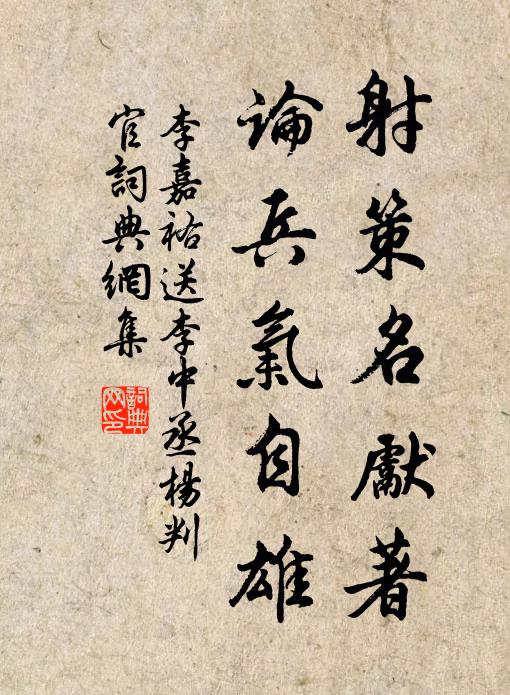 射策名獻著
論兵氣自雄
李嘉祐送李中丞楊判
官詞典網集
詞典
网印